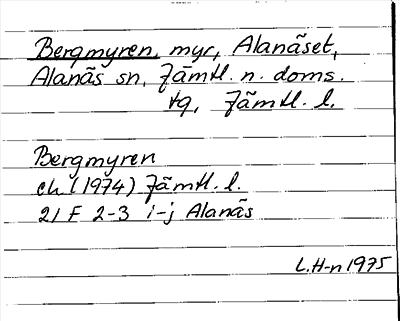 Bergmyren, myr, Alanäset,
Alanäs sn, Jämtl. n. doms.
tg, Jämtl. l.
Bergmyren
ek (1974) Jämtl. l.
21 F 2-3 i-j Alanäs
L.H-n 1975